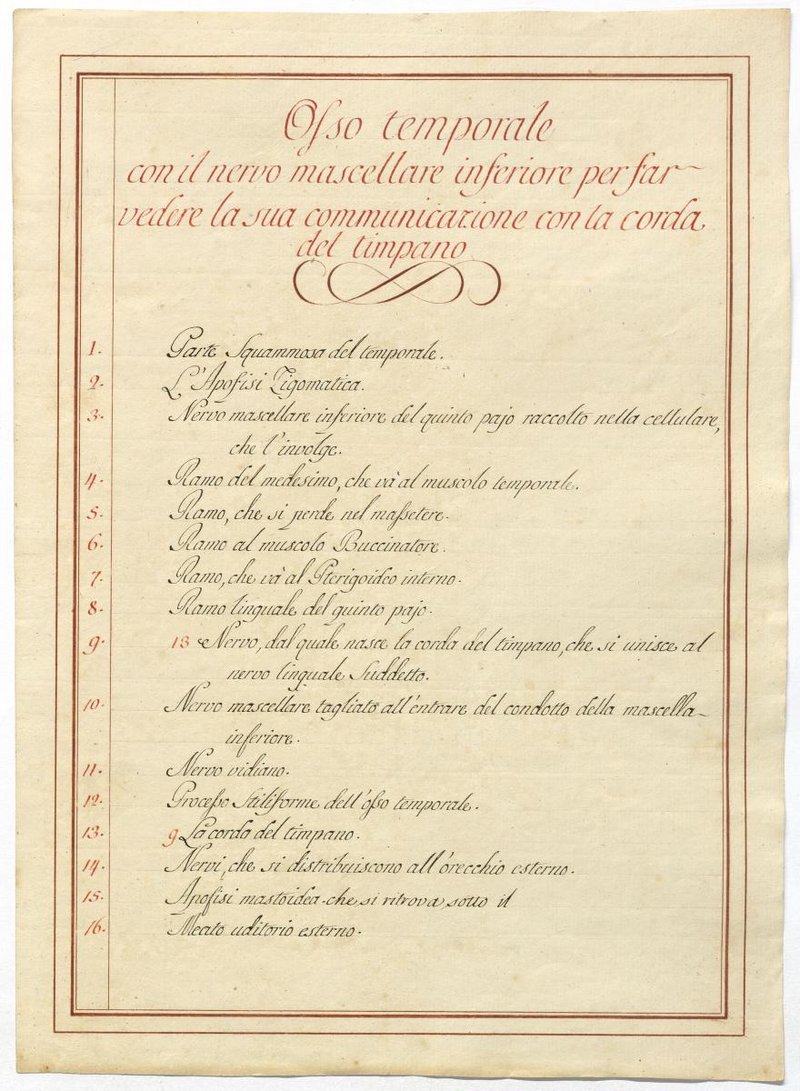 Osso temporale
con il nervo mascellare inferiore per far
vedere la sua communicazione con la corda
del timpano
1. Parte Squammosa del temporale.
2. L'Apofisi Zigomatica.
3. Nervo mascellare inferiore del quinto pajo raccolto nella cellulare,
che l'involge.
4. Ramo del medesimo, che và al muscolo temporale.
5. Ramo, che si perde nel massetere.
6. Ramo al muscolo Buccinatore.
7. Ramo, che và al Pterigoideo interno.
8. Ramo linguale del quinto pajo.
9. 13 Nervo, dal quale nasce la corda del timpano, che si unisce al
nervo linguale Suddetto.
10. Nervo mascellare tagliato all'entrare del condotto della mascella
inferiore.
11. Nervo vidiano.
12. Processo Stiliforme dell'osso temporale.
13. 9 La corda del timpano.
14. Nervi, che si distribuiscono all'orecchio esterno.
15. Apofisi mastoidea che si ritrova sotto il
16. Meato uditorio esterno.